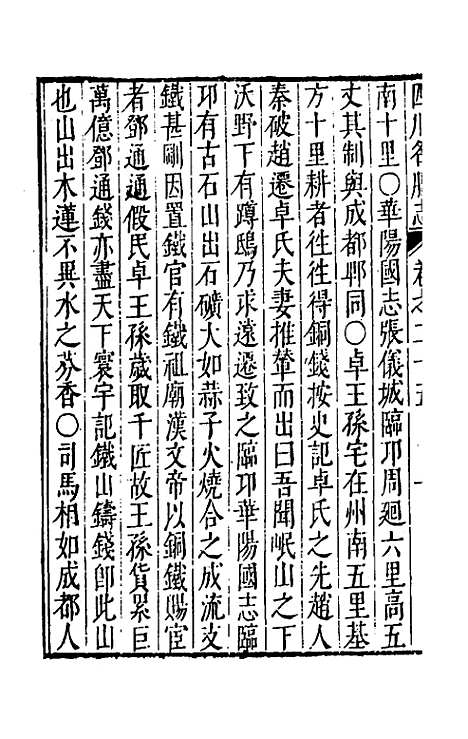 南十里〇華陽國志張儀城臨邛周廻六里高五
丈其制與成都郫同〇卓王孫宅在州南五里基
方十里耕者徃徃得銅錢按史記卓氏之先趙人
秦破趙遷卓氏夫妻推輦而出曰吾聞岷山之下
沃野下有蹲鴟乃求遠遷致之臨邛華陽國志臨
邛有古石山出石礦大如蒜子火燒合之成流支
鐵甚剛因置鐵官有鐵祖廟漢文帝以銅鐵賜宦
者鄧通通假民卓王孫歲取千匹故王孫貨累巨
萬億鄧通錢亦盡天下寰宇記鐵山鑄錢卽此山
也山出木蓮不異水之芬香〇司馬相如成都人